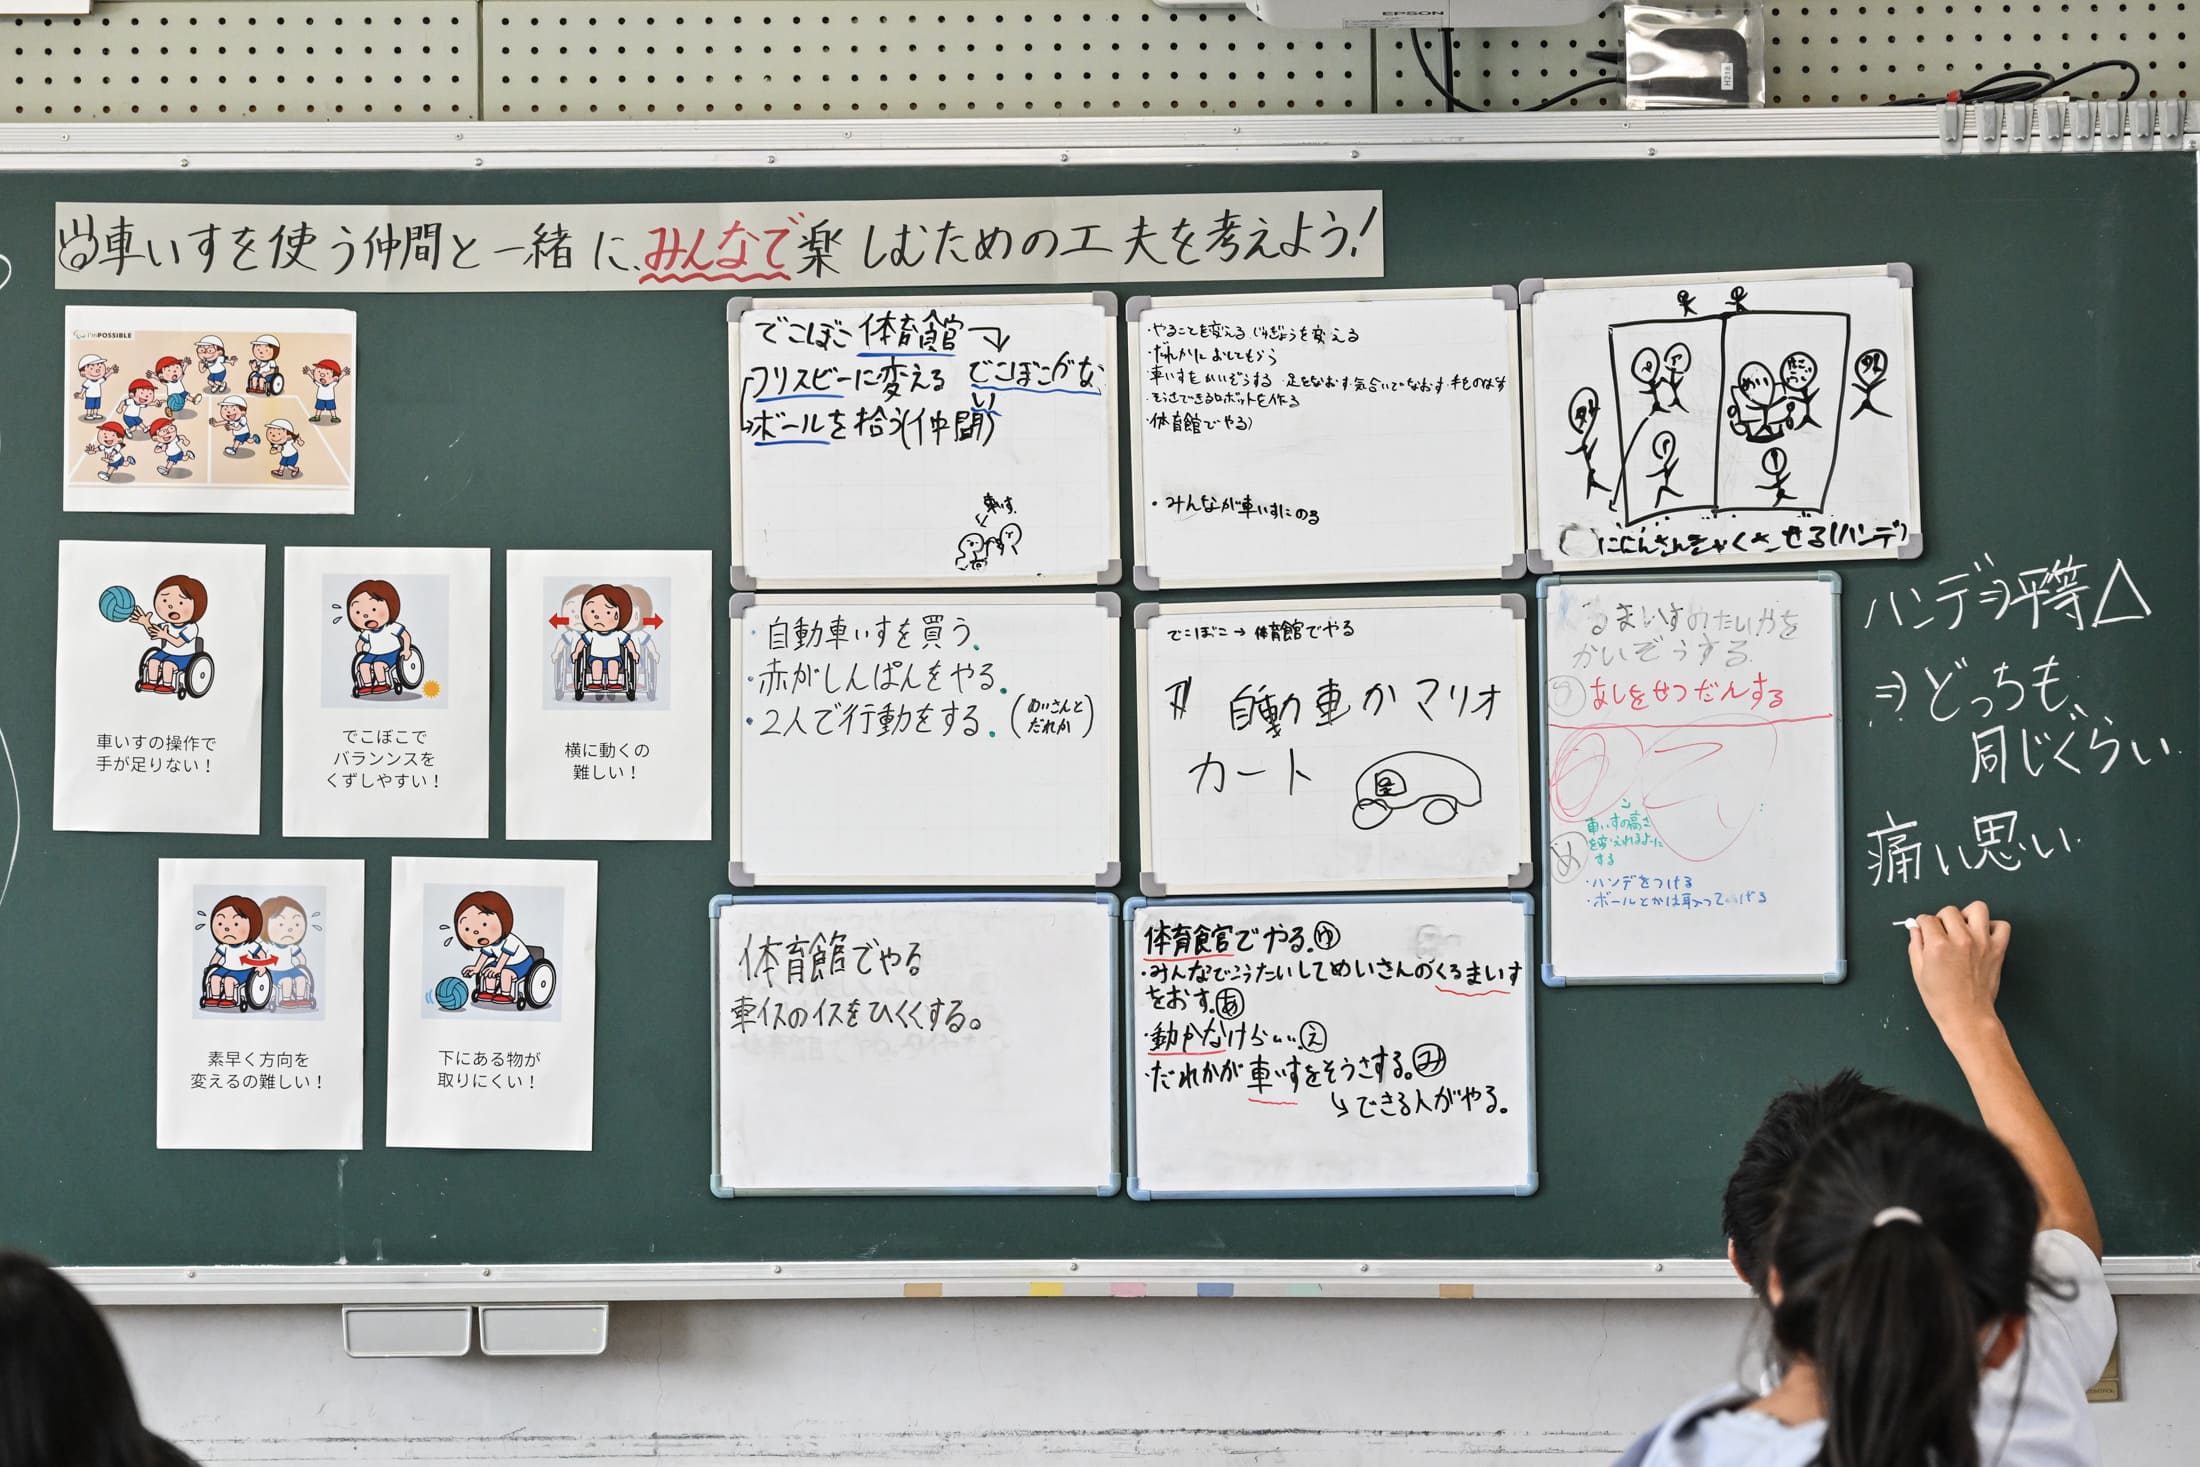 EPSON
H218
車いすを使う仲間と一緒に、みんなで楽しむための工夫を考えよう!
I'mPOSSIBLE
車いすの操作で
手が足りない!
でこぼこで
バランンスを
くずしやすい!
横に動くの
難しい!
素早く方向を
変えるの難しい!
下にある物が
取りにくい!
でこぼこ 体育館
フリスビーに変える でこぼこがな
い
ボールを拾う(仲間)
車いす
・やることを変える じゅぎょうを変える
・だれかにおしてもらう
・車いすをかいぞうする ・足をなおす・気合いでなおす・手をのばす
・そうさできるロボットを作る
・体育館でやる)
・みんなが車いすにのる
めい
ににんさんきゃくさせる(ハンデ)
・自動車いすを買う。
・赤がしんぱんをやる。
・2人で行動をする。(めいさんと
だれか)
でこぼこ→体育館でやる
自動車かマリオ
カート
くるまいすのたいやを
かいぞうする
あしをせつだんする
車いすの高さ
を変えれるように
する
・ハンデをつける
・ボールとかは取ってあげる
体育館でやる
車イスのイスをひくくする。
体育館でやる。ゆ
・みんなでこうたいしてめいさんのくるまいす
をおす。あ
・動かなければいい。え
・だれかが車いすをそうさする。み
↳できる人がやる。
ハンデ⇒平等△
⇒どっちも、
同じくらい
痛い思い